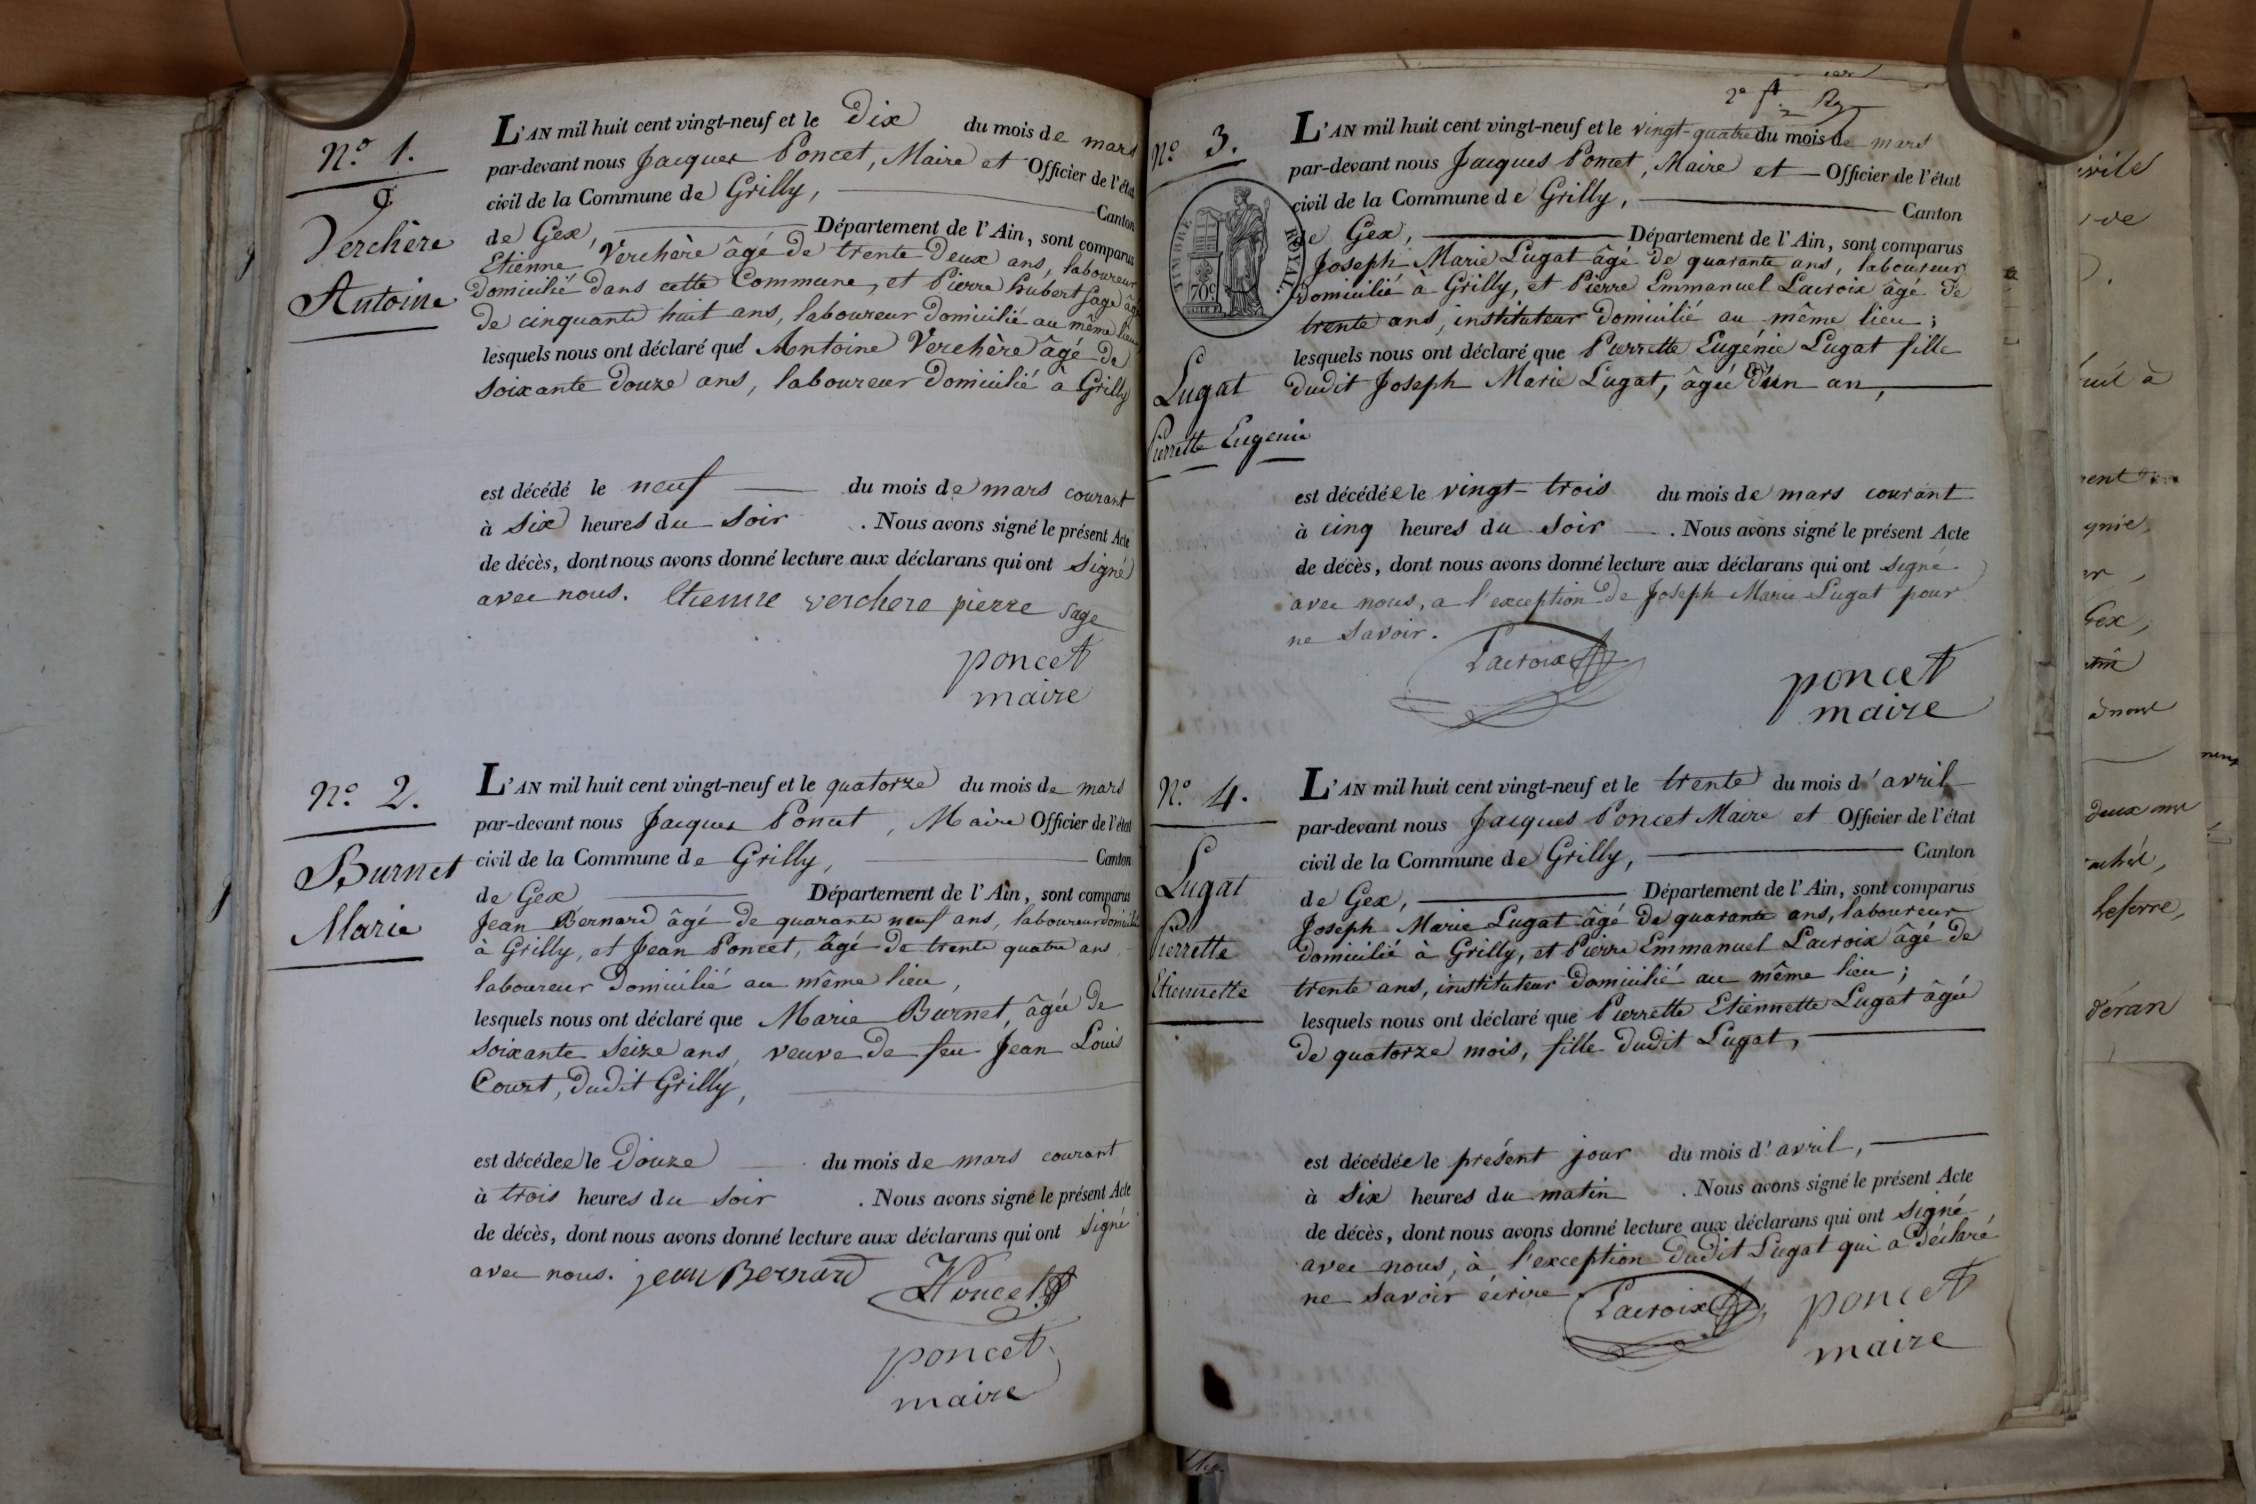 N.º 1.
Verchère
Antoine
L'AN mil huit cent vingt-neuf et le Dix du mois de mars
par-devant nous Jacques Poncet, Maire et Officier de l'état
civil de la Commune de Grilly, Canton
de Gex, Département de l'Ain, sont comparus
Etienne Verchère âgé de trente Deux ans, laboureur
domicilié dans cette Commune, et Pierre hubert Sage âgé
de cinquante huit ans, laboureur domicilié au même lieu
lesquels nous ont déclaré que Antoine Verchère âgé de
soixante douze ans, laboureur domicilié à Grilly
est décédé le neuf du mois de mars courant
à six heures du soir . Nous avons signé le présent Acte
de décès, dont nous avons donné lecture aux déclarans qui ont signé
avec nous. Etienne verchere pierre sage
poncet
maire
N.º 2.
Burnet
Marie
L'AN mil huit cent vingt-neuf et le quatorze du mois de mars
par-devant nous Jacques Poncet, Maire Officier de l'état
civil de la Commune de Grilly, Canton
de Gex Département de l'Ain, sont comparus
Jean Bernard âgé de quarante neuf ans, laboureur domicilié
à Grilly, et Jean Poncet, âgé de trente quatre ans
laboureur domicilié au même lieu,
lesquels nous ont déclaré que Marie Burnet, âgée de
soixante seize ans, veuve de feu Jean Louis
Court, dudit Grilly,
est décédée le Douze du mois de mars courant
à trois heures du soir . Nous avons signé le présent Acte
de décès, dont nous avons donné lecture aux déclarans qui ont signé
avec nous. jean Bernard Poncet
poncet
maire
2e
N.º 3.
TIMBRE ROYAL
70c
Lugat
Pierrette Eugenie
L'AN mil huit cent vingt-neuf et le vingt-quatre du mois de mars
par-devant nous Jacques Poncet, Maire et Officier de l'état
civil de la Commune de Grilly, Canton
de Gex, Département de l'Ain, sont comparus
Joseph Marie Lugat âgé de quarante ans, laboureur
domicilié à Grilly, et Pierre Emmanuel Lacroix âgé de
trente ans, instituteur domicilié au même lieu;
lesquels nous ont déclaré que Pierrette Eugénie Lugat fille
dudit Joseph Marie Lugat, âgée d'un an,
est décédée le vingt-trois du mois de mars courant
à cinq heures du soir . Nous avons signé le présent Acte
de décès, dont nous avons donné lecture aux déclarans qui ont signé
avec nous, a l'exception de Joseph Marie Lugat pour
ne savoir.
Lacroix
poncet
maire
N.º 4.
Lugat
Pierrette
Etiennette
L'AN mil huit cent vingt-neuf et le trente du mois d'avril
par-devant nous Jacques Poncet Maire et Officier de l'état
civil de la Commune de Grilly, Canton
de Gex, Département de l'Ain, sont comparus
Joseph Marie Lugat âgé de quarante ans, laboureur
domicilié à Grilly, et Pierre Emmanuel Lacroix âgé de
trente ans, instituteur domicilié au même lieu;
lesquels nous ont déclaré que Pierrette Etiennette Lugat âgée
de quatorze mois, fille dudit Lugat,
est décédée le présent jour du mois d'avril,
à six heures du matin . Nous avons signé le présent Acte
de décès, dont nous avons donné lecture aux déclarans qui ont signé
avec nous, à l'exception dudit Lugat qui a déclaré
ne savoir écrire
Lacroix
poncet
maire